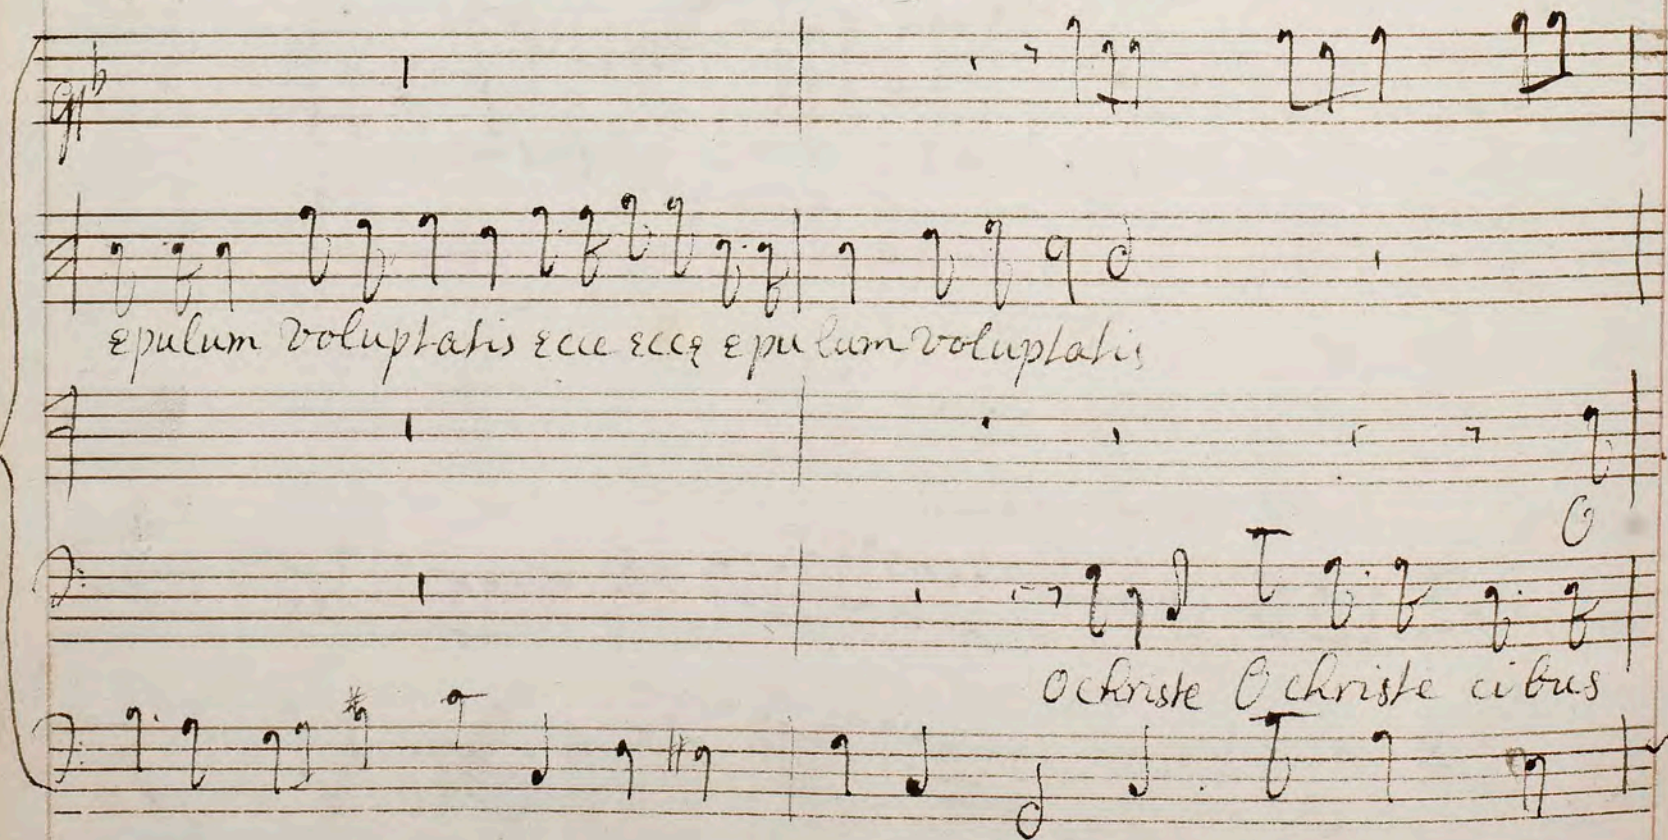 epulum voluptatis ecce eccę epulum voluptatis
O
O christe O christe cibus